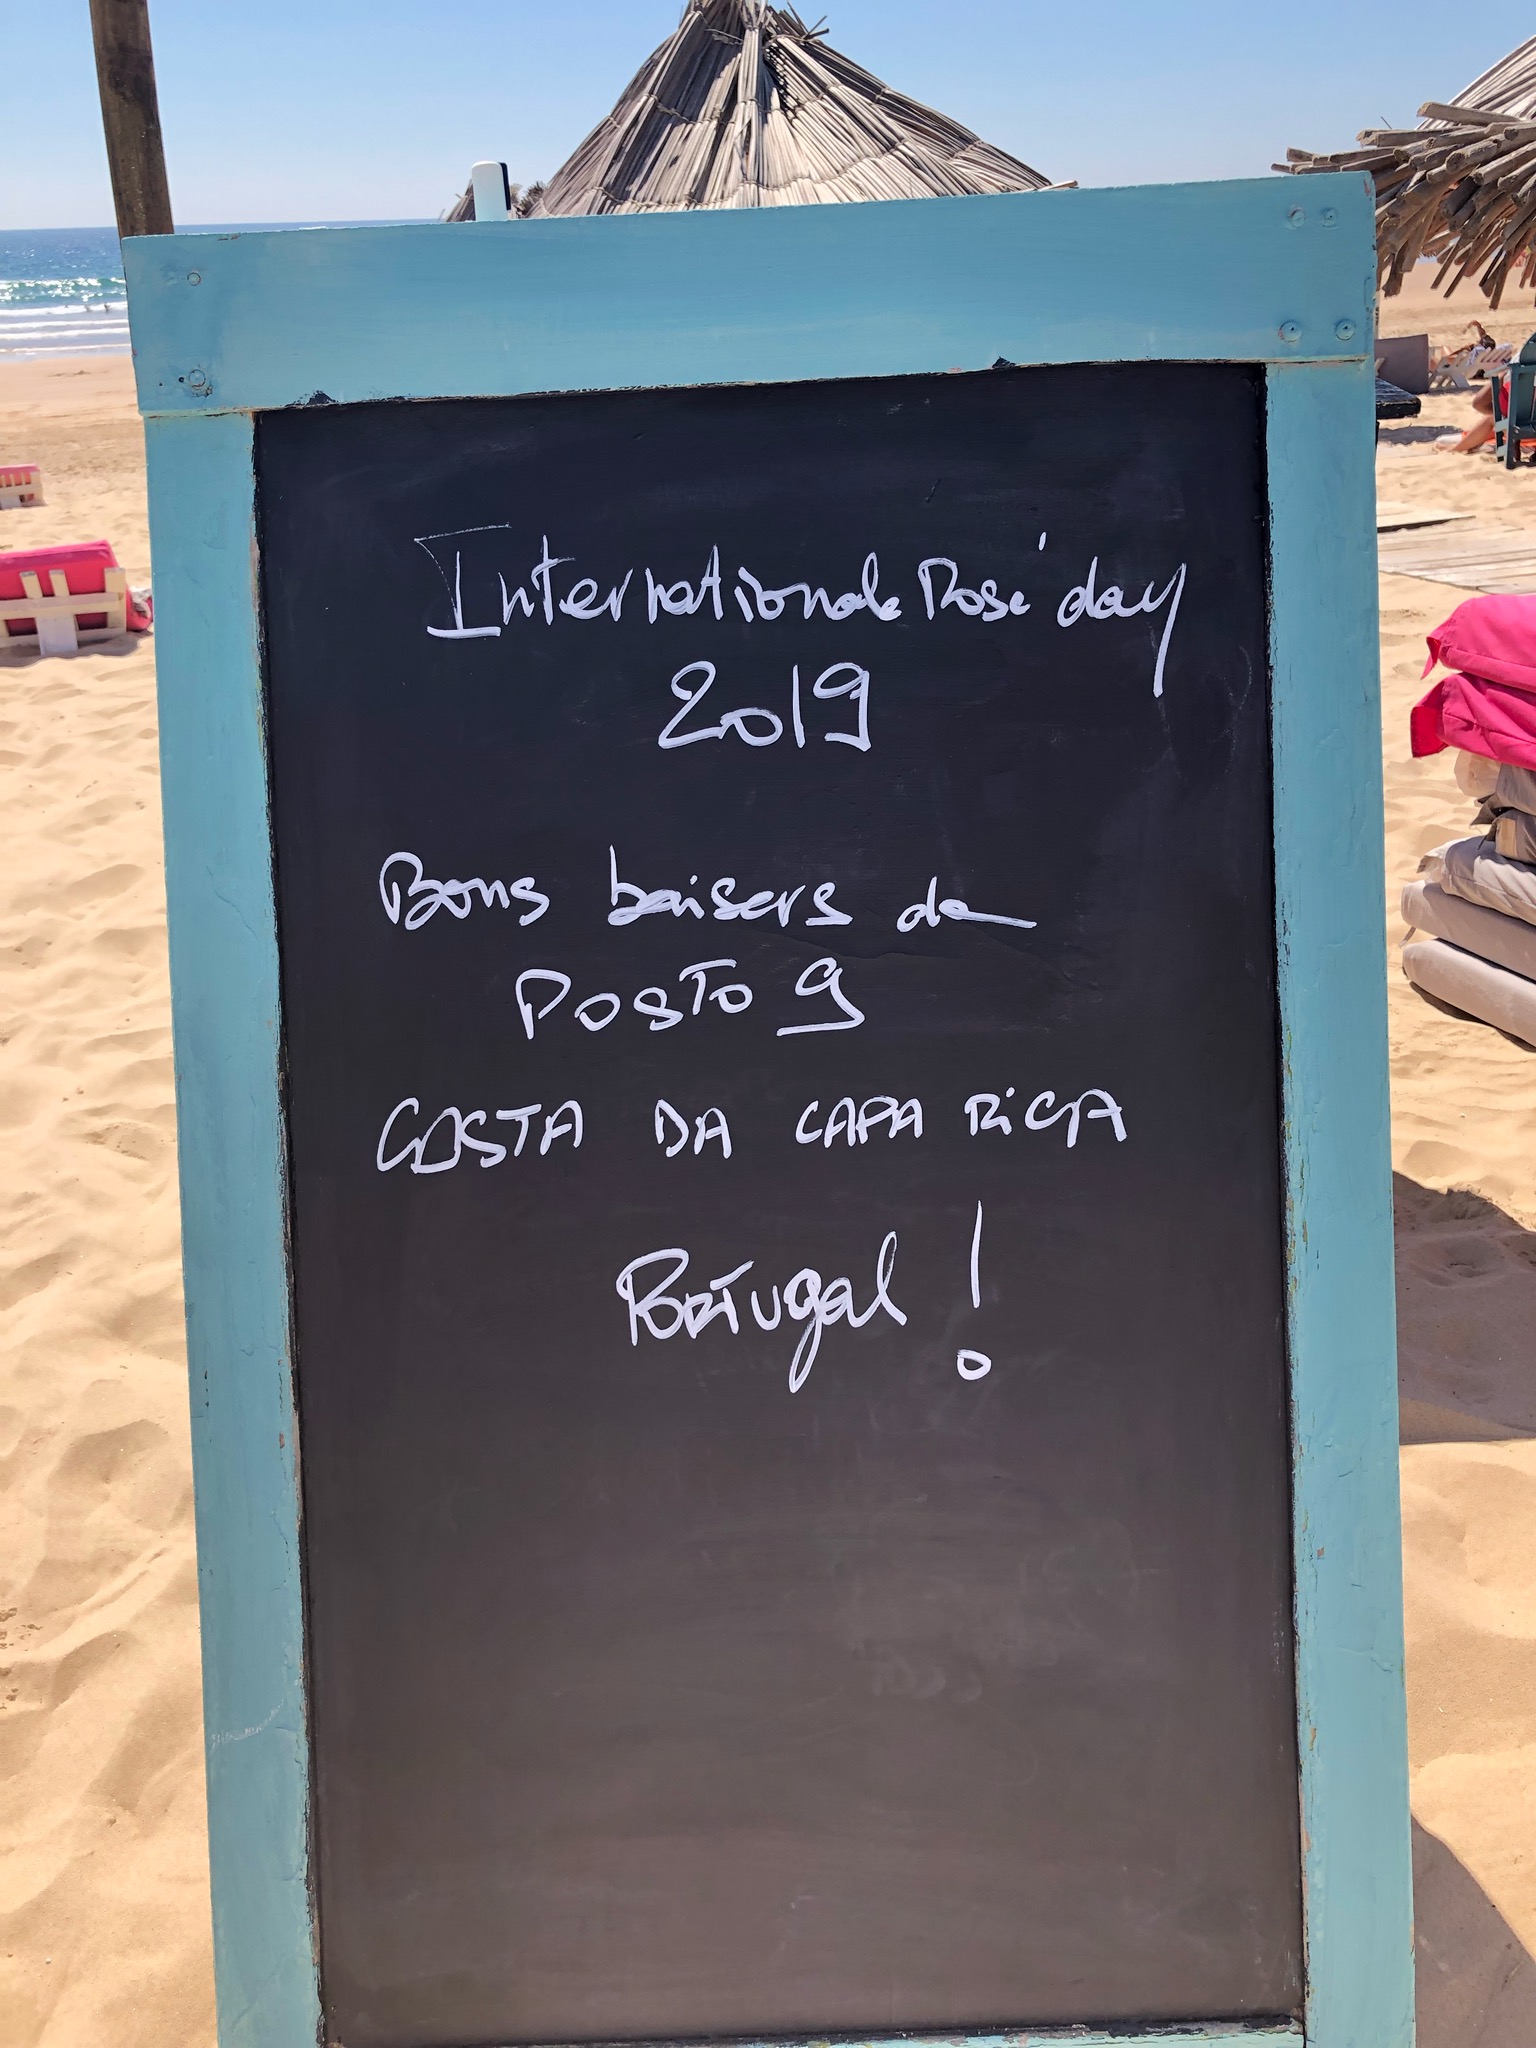 Internationale Rosé day
2019
Bons baisers de
Posto 9
COSTA DA CAPARICA
Portugal !